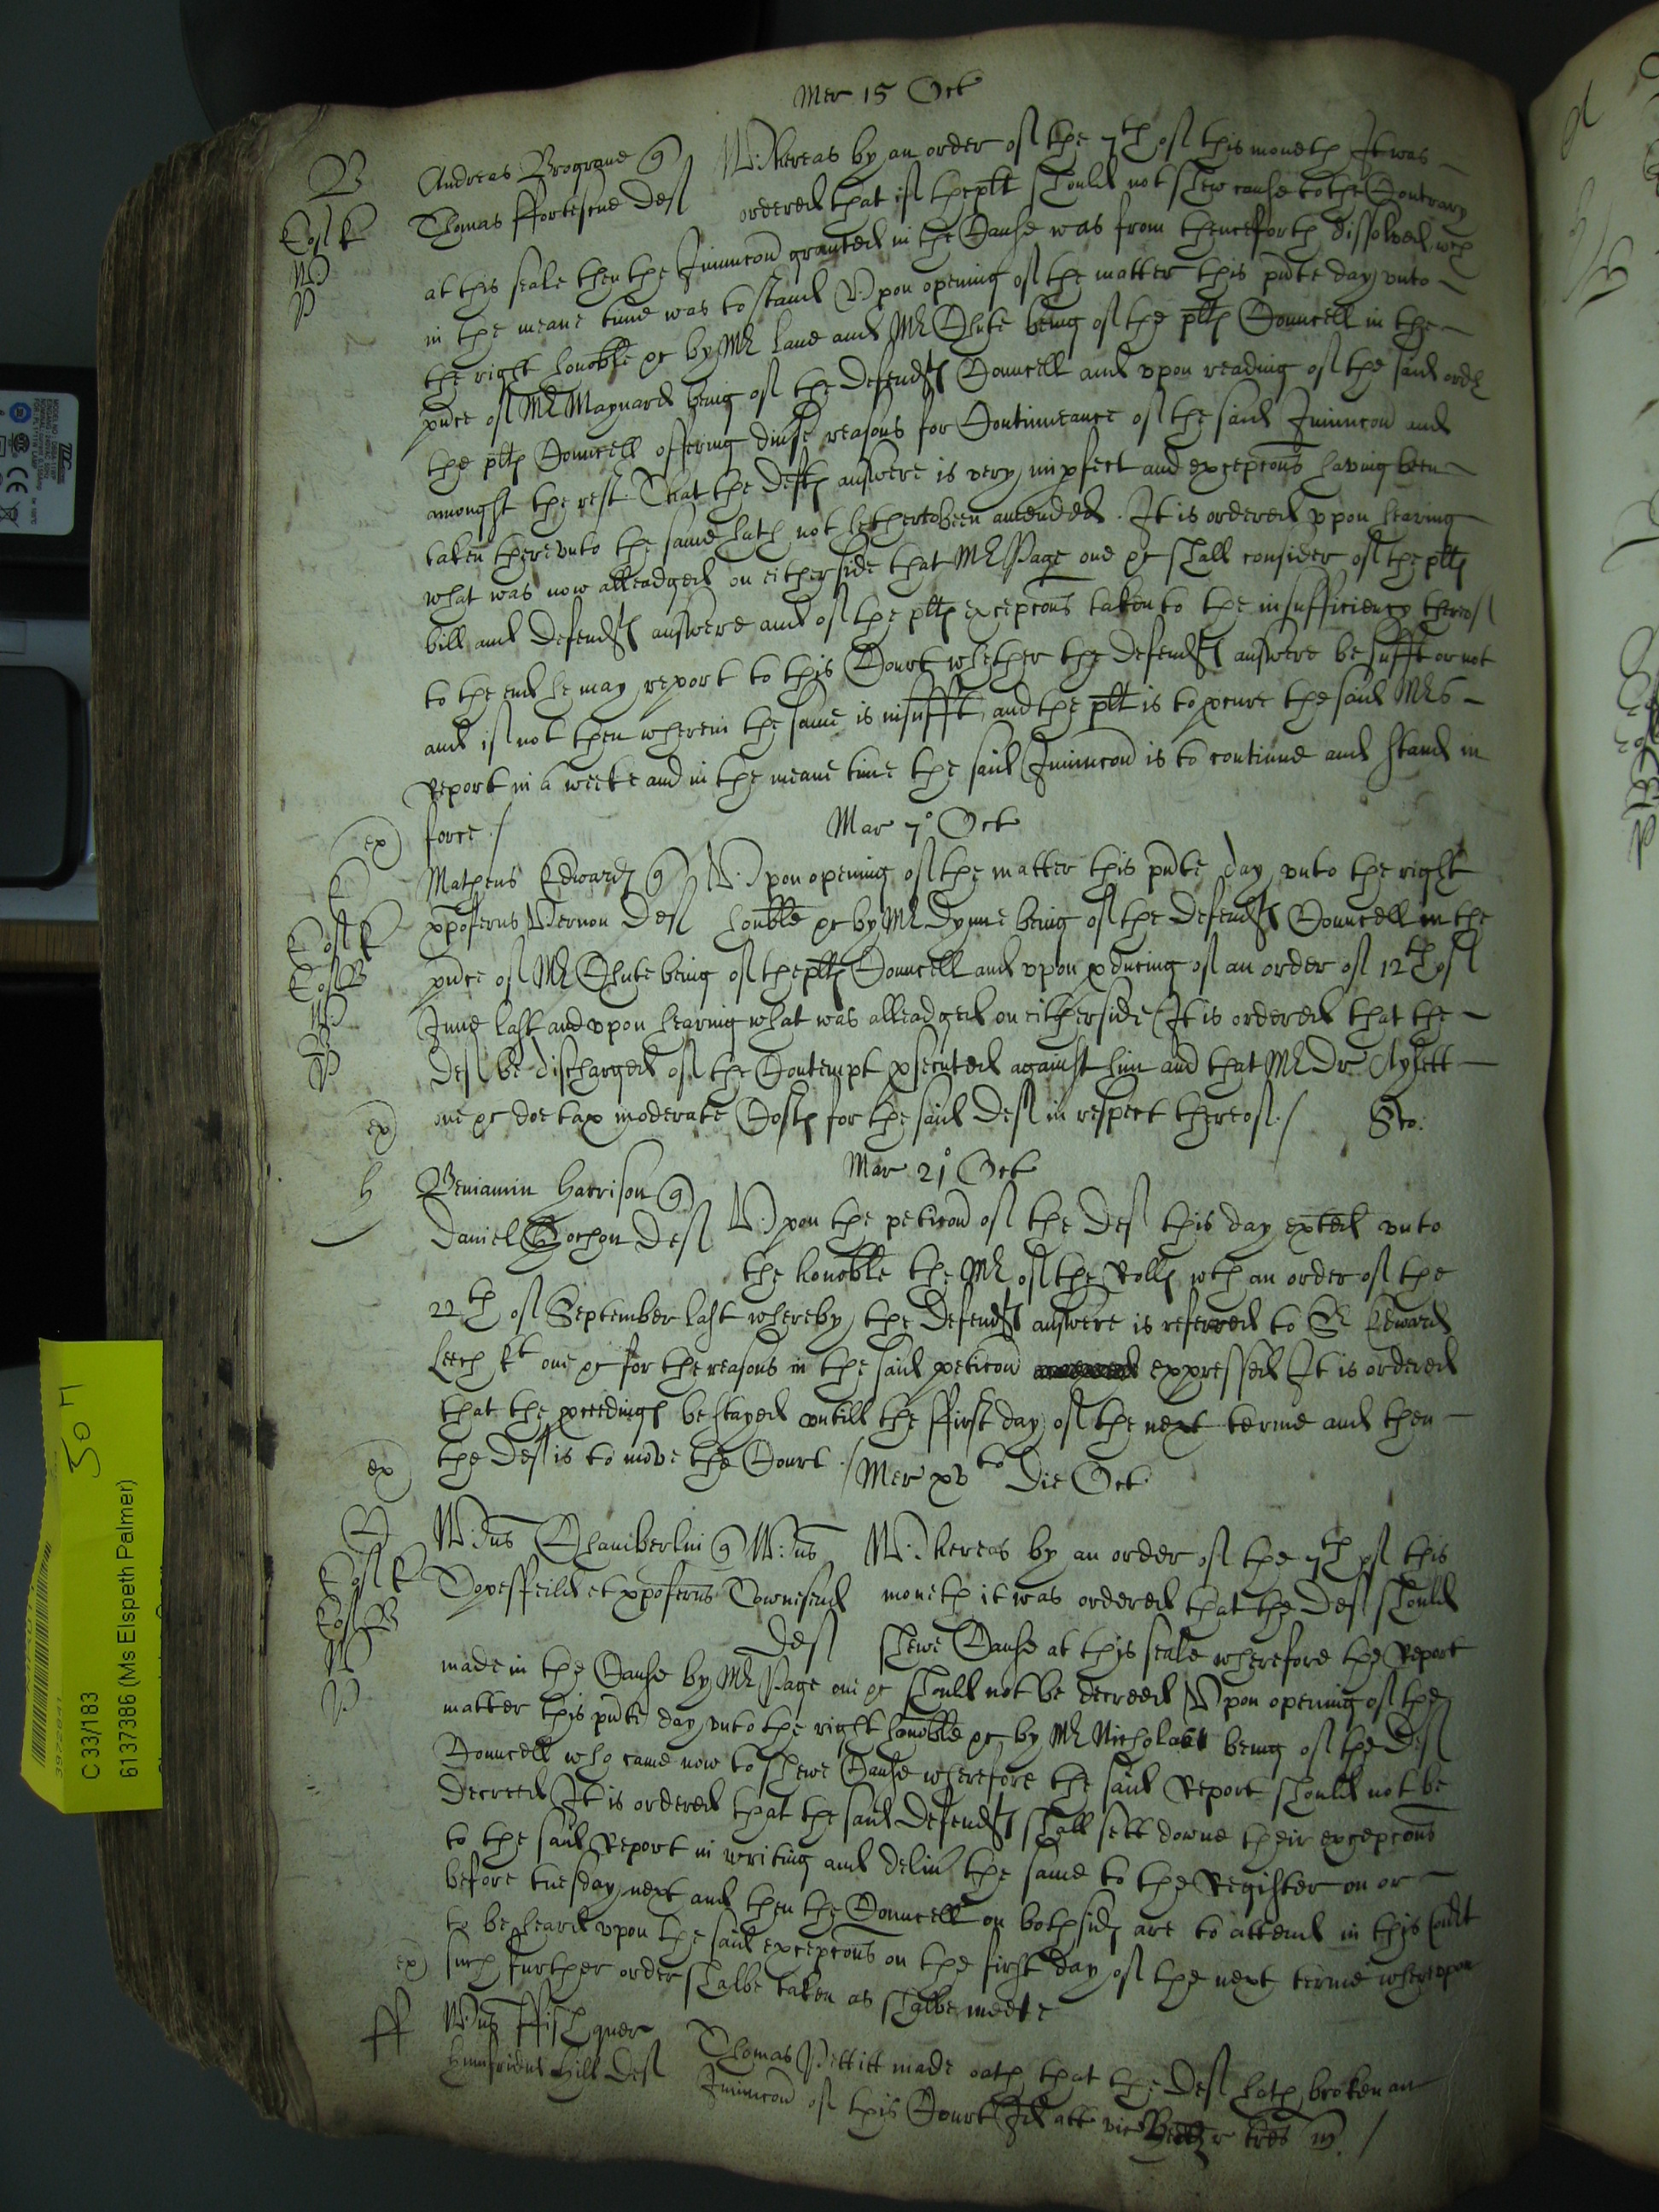 Mer 15 Oct
B Andreas Brograve q Whereas by an order of the 7th of this moneth It was
Thomas ffortescue def ordered that if the plt should not shew cause to the Contrary
at this seale then the Iniuncon granted in the Cause was from thenceforth dissolved wch
in the meane time was to stand Upon opening of the matter this pnte day unto
the right honoble &c by Mr Lane and Mr Chute being of the plts Councell in the
pnce of Mr Maynard being of the Defendts Councell and upon reading of the said order
the plts Councell offering divse reasons for Continueance of the said Iniuncon and
amongst the rest That the Defts answere is very impfect and excepcons having been
taken thereunto the same hath not hethertobeen amended. It is ordered upon hearing
what was now alleadged on either side that Mr Page one &c shall consider of the plts
bill and Defendts answere and of the plts excepcons taken to the insufficiency thereof
to the end he may report to this Court whether the Defendts answere be sufft or not
and if not then wherein the same is insufft, and the plt is to pcure the said Mrs
Report in a weeke and in the meane time the said Iniuncon is to continue and stand in
ex force./
Mar 7° Oct
Matheus Edwards q Upon opening of the matter this pnte day unto the right
xpoferus Vernon Def honble &c by Mr Dynne being of the Defendts Councell in the
pnce of Mr Chute being of the plts Councell and upon pducing of an order of 12th of
June last and upon hearing what was alleadged on either side It is ordered that the
Def be discharged of the Contempt psecuted against him and that Mr Dr Aylett
ex one &c doe tax moderate Costs for the said Def in respect thereof./ Sto.
Mar 21° Oct
h Beniamin Harrison q
Daniel Def Upon the peticon of the Def this day exted unto
the honoble the Mr of the Rolls wth an order of the
22th of September last whereby the Defendts answere is referred to Sr Edward
Leech kt one &c for the reasons in the said peticon expressed It is ordered
that the pceedings be stayed untill the ffirst day of the next terme and then
ex the Def is to move the Court./
Mer xvto die Oct
Wus Chamberlin q Wus Whereas by an order of the 7th of this
Copesfeild et xpoferus Townesend moneth it was ordered that the Def should
Def shewe Cause at this seale wherefore the Report
made in the Cause by Mr Page one &c should not be decreed Upon opening of the
matter this pnte day unto the right honoble &c by Mr Nicholas being of the Def
Councell who came now to shewe Cause wherefore the said Report should not be
Decreed It is ordered that the said Defendts shall sett downe their excepcons
to the said Report in writing and deliv the same to the Register on or
before tuesday next and then the Councell on both sids are to attend in this Court
to be heard upon the said excepcons on the first day of the next terme whereupon
ex such further order shalbe taken as shalbe meete
ff Wus ffish quer Thomas Pettitt made oath that the Def hath broken an
Humfridus Hill Def Iniuncon of this Court Id att vic
C 33/183
6137386 (Ms Elspeth Palmer)